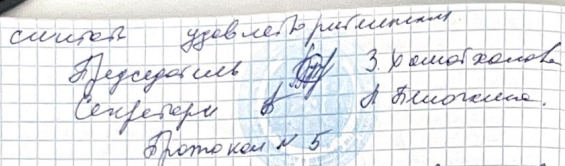 считать удовлетворительной.
Председатель З. Хаматханова
Секретарь А.
Протокол N 5